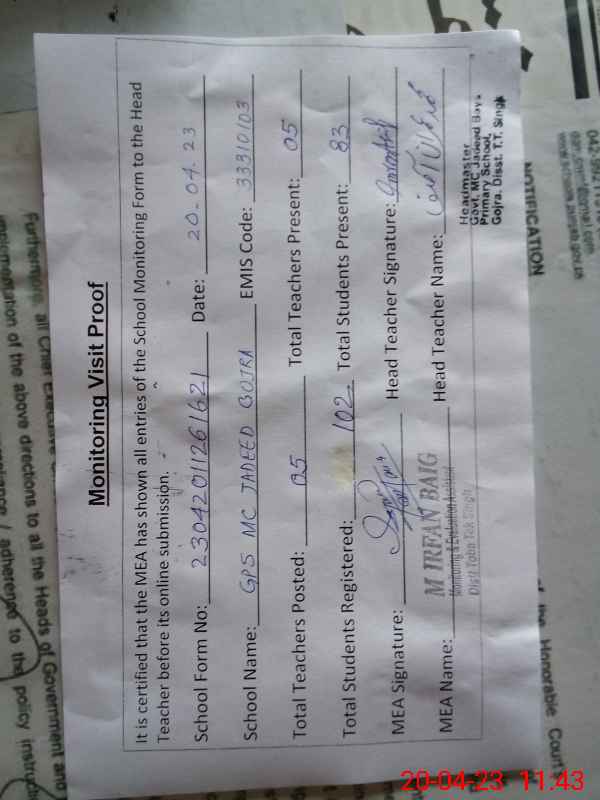 Monitoring Visit Proof
It is certified that the MEA has shown all entries of the School Monitoring Form to the Head
Teacher before its online submission.
School Form No: 2304201126 1621 Date: 20-04.23
School Name: GPS MC JADEED GOJRA EMIS Code: 33310103
Total Teachers Posted: 05 Total Teachers Present: 05
Total Students Registered: 102 Total Students Present: 83
MEA Signature: Head Teacher Signature:
M IRFAN BAIG
Monitoring & Evaluation Assistant
Distt Toba Tek Singh
MEA Name: Head Teacher Name:
Headmaster
Govt. MC Jadeed Boys
Primary School,
Gojra. Disst. T.T. Singh
NOTIFICATION
Furthermore, all Chief Executive
implementation of the above directions to all the Heads of Government and
/ adherence to the policy instruct
of the Honorable Court
20-04-23 11:43